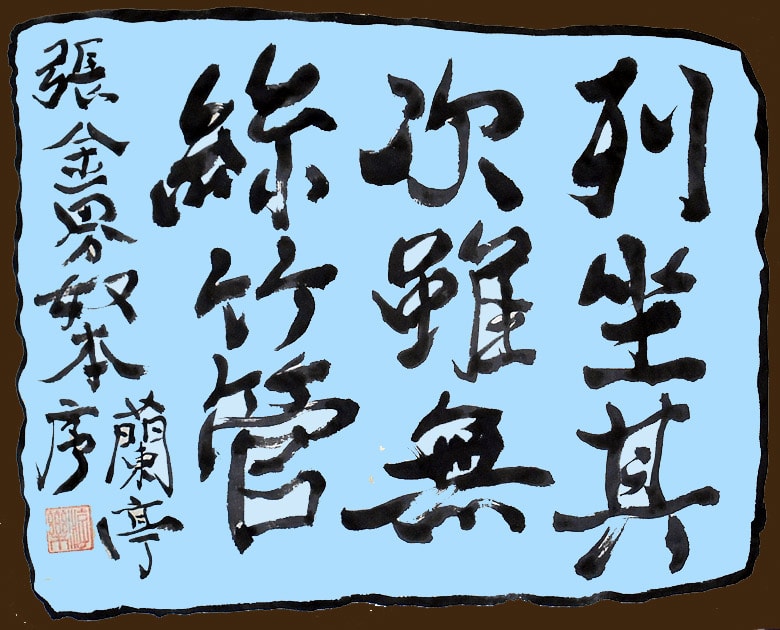 列坐其
次雖無
絲竹管
張金界奴本
蘭亭
序